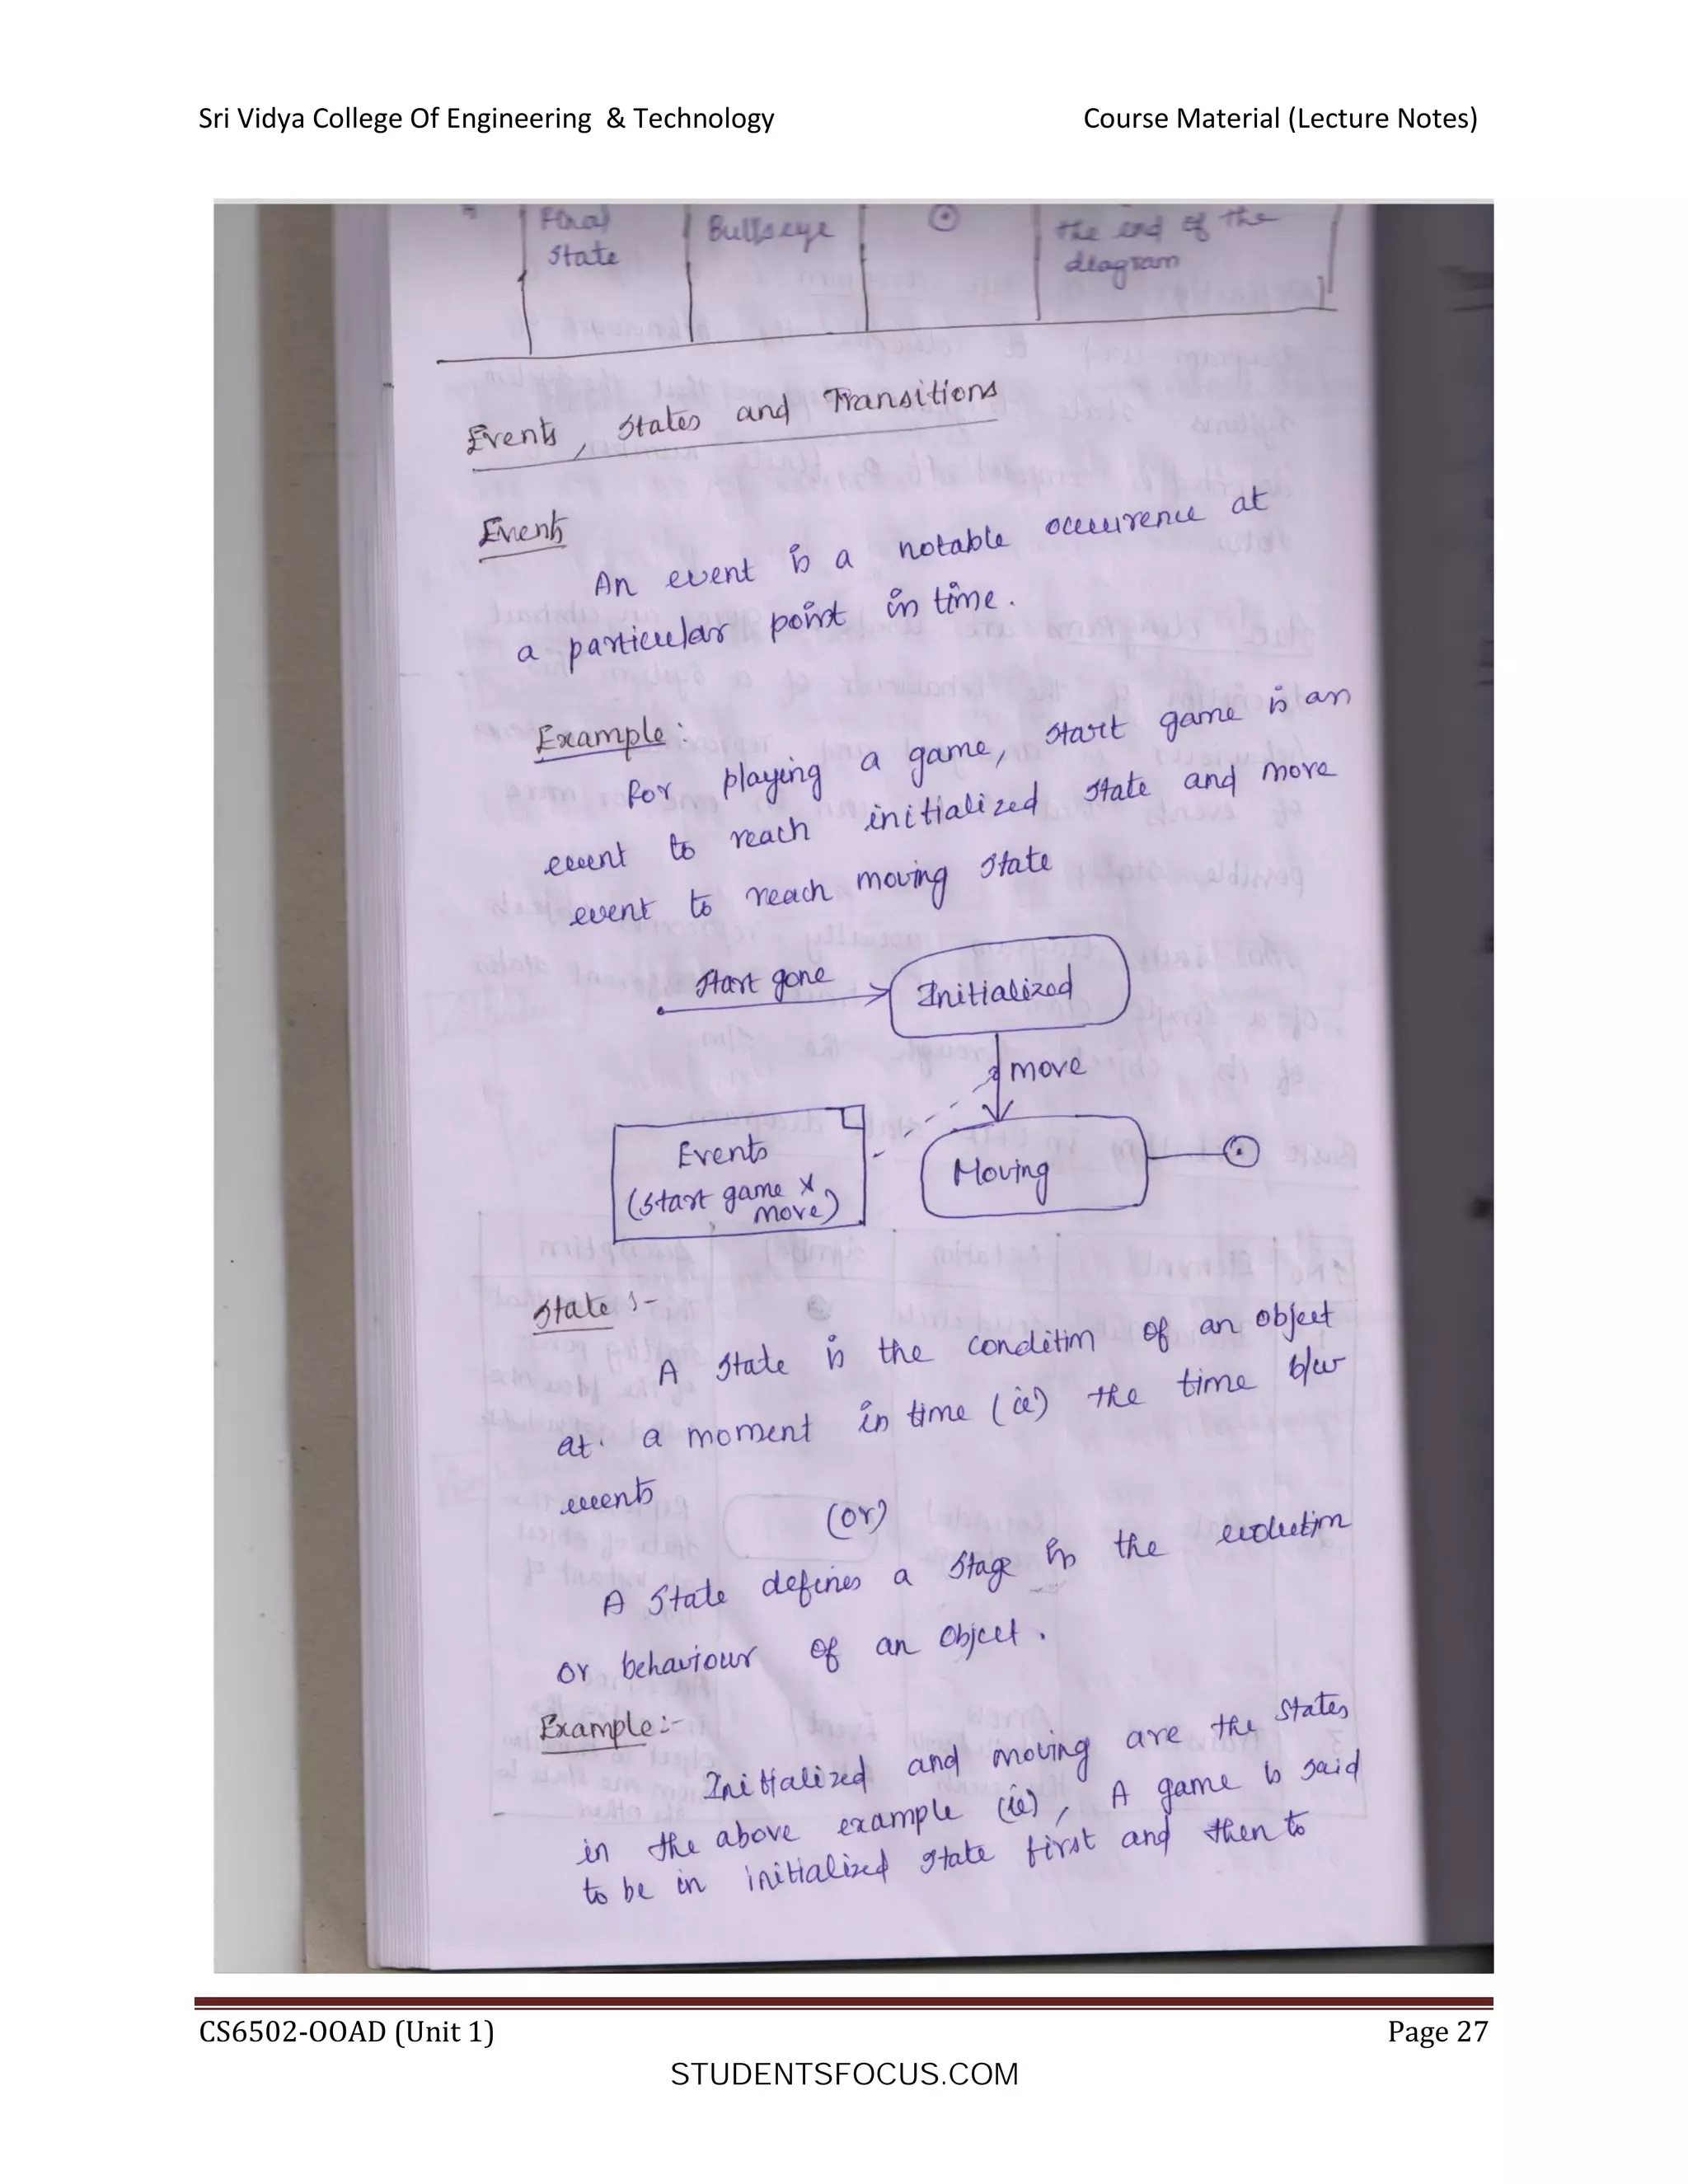 Sri Vidya College Of Engineering & Technology Course Material (Lecture Notes)
Final Bullseye the end of the
state diagram
Events, States and Transitions
Events
An event is a notable occurrence at
a particular point in time.
Example:
For playing a game, start game is an
event to reach initialized state and move
event to reach moving state
Start game
Initialized
move
Events
(start game &
move)
Moving
State :-
A state is the condition of an object
at a moment in time (ie) the time b/w
events
(or)
A State defines a stage in the evolution
or behaviour of an object.
Example:-
Initialized and moving are the states
in the above example (ie), A game is said
to be in initialized state first and then to
CS6502-OOAD (Unit 1) Page 27
STUDENTSFOCUS.COM